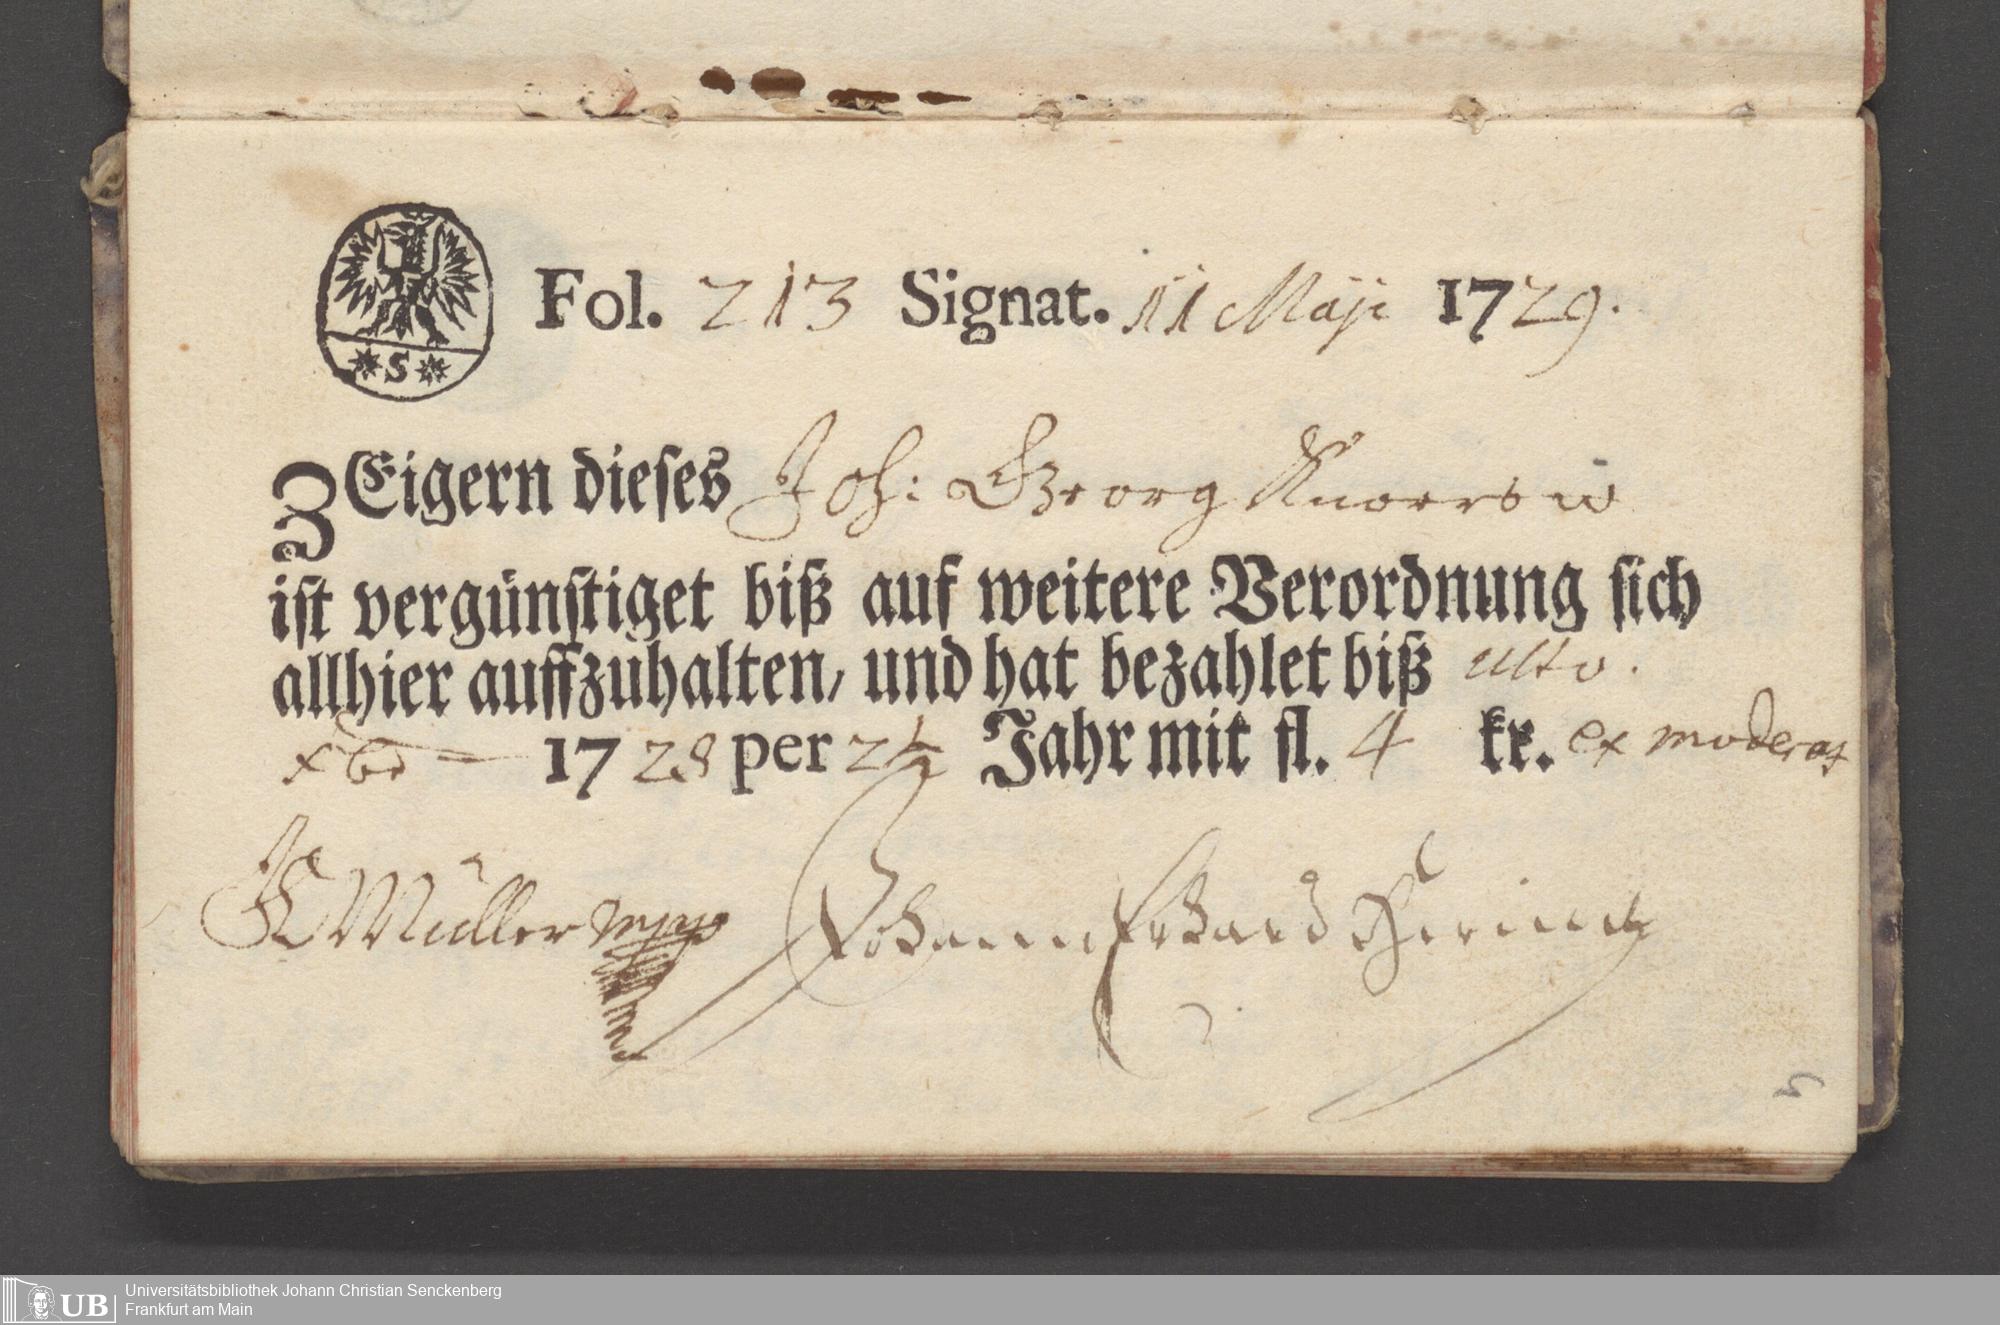 Fol. 213 Signat. 11 Maji 1729.
*S*
ZEigern dieses Joh: Georg Knorr
ist vergünstiget biß auf weitere Verordnung sich
allhier auffzuhalten, und hat bezahlet biß ulto.
xbr 1728 per 2½ Jahr mit fl. 4 kr. ex moderat
JC Müller mpp Johann Erhard
5
UB Universitätsbibliothek Johann Christian Senckenberg
Frankfurt am Main